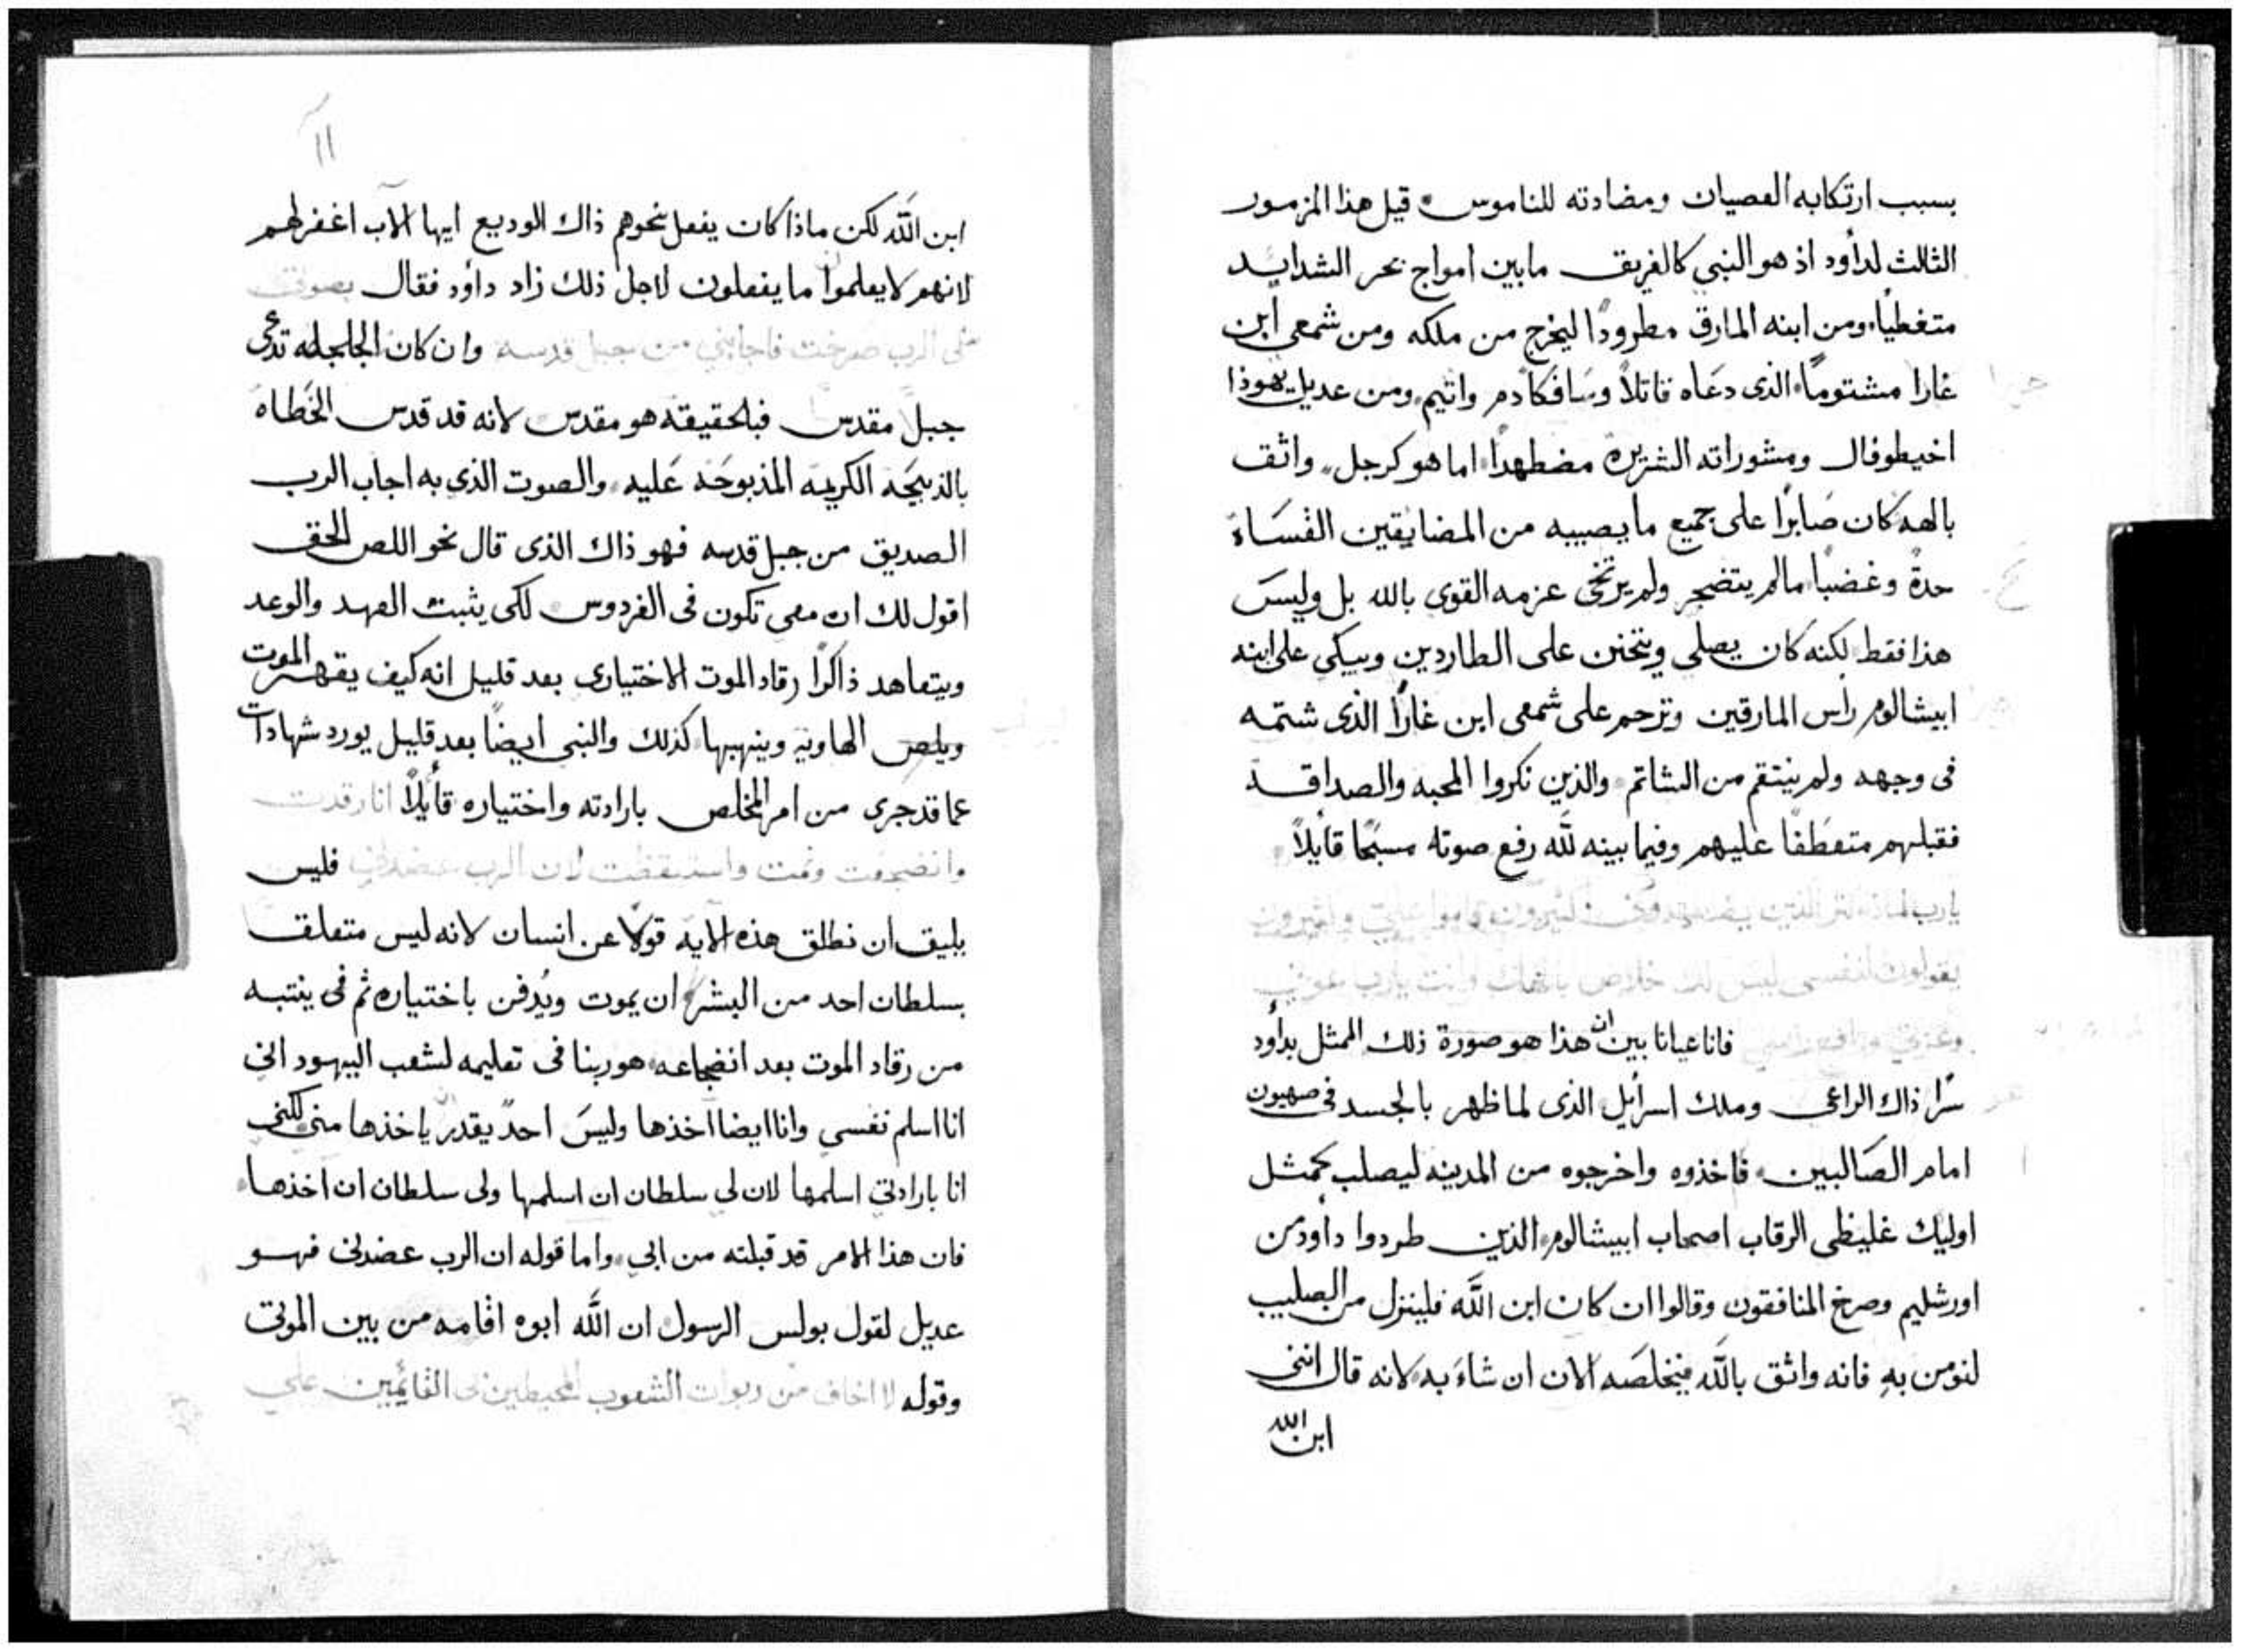 بسبب ارتكابه العصيان ومضادته للناموس قيل هذا المزمور
الثالث لداود اذ هو النبي كالغريق مابين امواج بحر الشدايد
متغطياً ومن ابنه المارق مطروداً ليخرج من ملكه ومن شمعى ابن
غارا مشتوماً الذى دعاه قاتلاً وسافكا دم واثيم ومن عديل يهوذا
اخيطوفال ومشوراته الشريره مضطهداً اما هو كرجل واثق
بالهه كان صابراً على جميع ما يصيبه من المضايقين القساة
حدةً وغضباً مالم يتضجر ولم يرتخى عزمه القوى بالله بل وليس
هذا فقط لكنه كان يصلي ويتحنن على الطاردين ويبكي على ابنه
ابيشالوم راس المارقين وترحم على شمعى ابن غاراً الذى شتمه
فى وجهه ولم ينتقم من الشاتم والذين نكروا المحبه والصداقه
فقبلهم متعطفاً عليهم وفيما بينه لله رفع صوته مسبحاً قايلاً
يارب لماذا كثر الذين يضطهدونني كثيرون قاموا علي وكثيرون
يقولون لنفسى ليس لك خلاص بالهك وانت يارب عوني
فاناعيانا بين ان هذا هو صورة ذلك الممثل بداود
سراً ذاك الراعى وملك اسرايل الذى لما ظهر بالجسد فى صهيون
امام الصالبين فاخذوه واخرجوه من المدينه ليصلب كمثل
اوليك غليظى الرقاب اصحاب ابيشالوم الذين طردوا داود من
اورشليم وصرخ المنافقون وقالوا ان كان ابن الله فلينزل من الصليب
لنومن به فانه واثق بالله فيخلصه الان ان شاء به لانه قال اننى
ابن الله
١١
ابن الله لكن ماذا كان يفعل نحوهم ذاك الوديع ايها الآب اغفر لهم
لانهم لا يعلموا ما يفعلون لاجل ذلك زاد داود فقال بصوتى
الى الرب صرخت فاجابني من جبل قدسه وان كان الجلجله تدعى
جبلاً مقدس فبالحقيقه هو مقدس لانه قد قدس الخطاه
بالذبيحه الكريمه المذبوحه عليه والصوت الذي به اجاب الرب
الصديق من جبل قدسه فهو ذاك الذى قال نحو اللص الحق
اقول لك ان معى تكون فى الفردوس لكى يثبت العهد والوعد
ويتعاهد ذاكراً رقاد الموت الاختيارى بعد قليل انه كيف يقهر الموت
ويلص الهاويه وينهبها كذلك والنبى ايضاً بعد قليل يورد شهادات
عما قد جرى من امر المخلص بارادته واختياره قايلاً انا رقدت
وانضجعت ونمت واستيقظت لان الرب عضدني فليس
يليق ان نطلق هذه الايه قولاً عن انسان لانه ليس متعلق
بسلطان احد من البشر ان يموت ويُدفن باختياره ثم فى ينتبه
من رقاد الموت بعد انضجاعه هو ربنا فى تعليمه لشعب اليهود انى
انا اسلم نفسي وانا ايضا اخذها وليس احدٌ يقدر ياخذها منى لكنى
انا بارادتي اسلمها لان لي سلطان ان اسلمها ولى سلطان ان اخذها
فان هذا الامر قد قبلته من ابي واما قوله ان الرب عضدنى فهو
عديل لقول بولس الرسول ان الله ابوه اقامه من بين الموتى
وقوله لا اخاف من ربوات الشعوب المحيطين بى القائمين علي